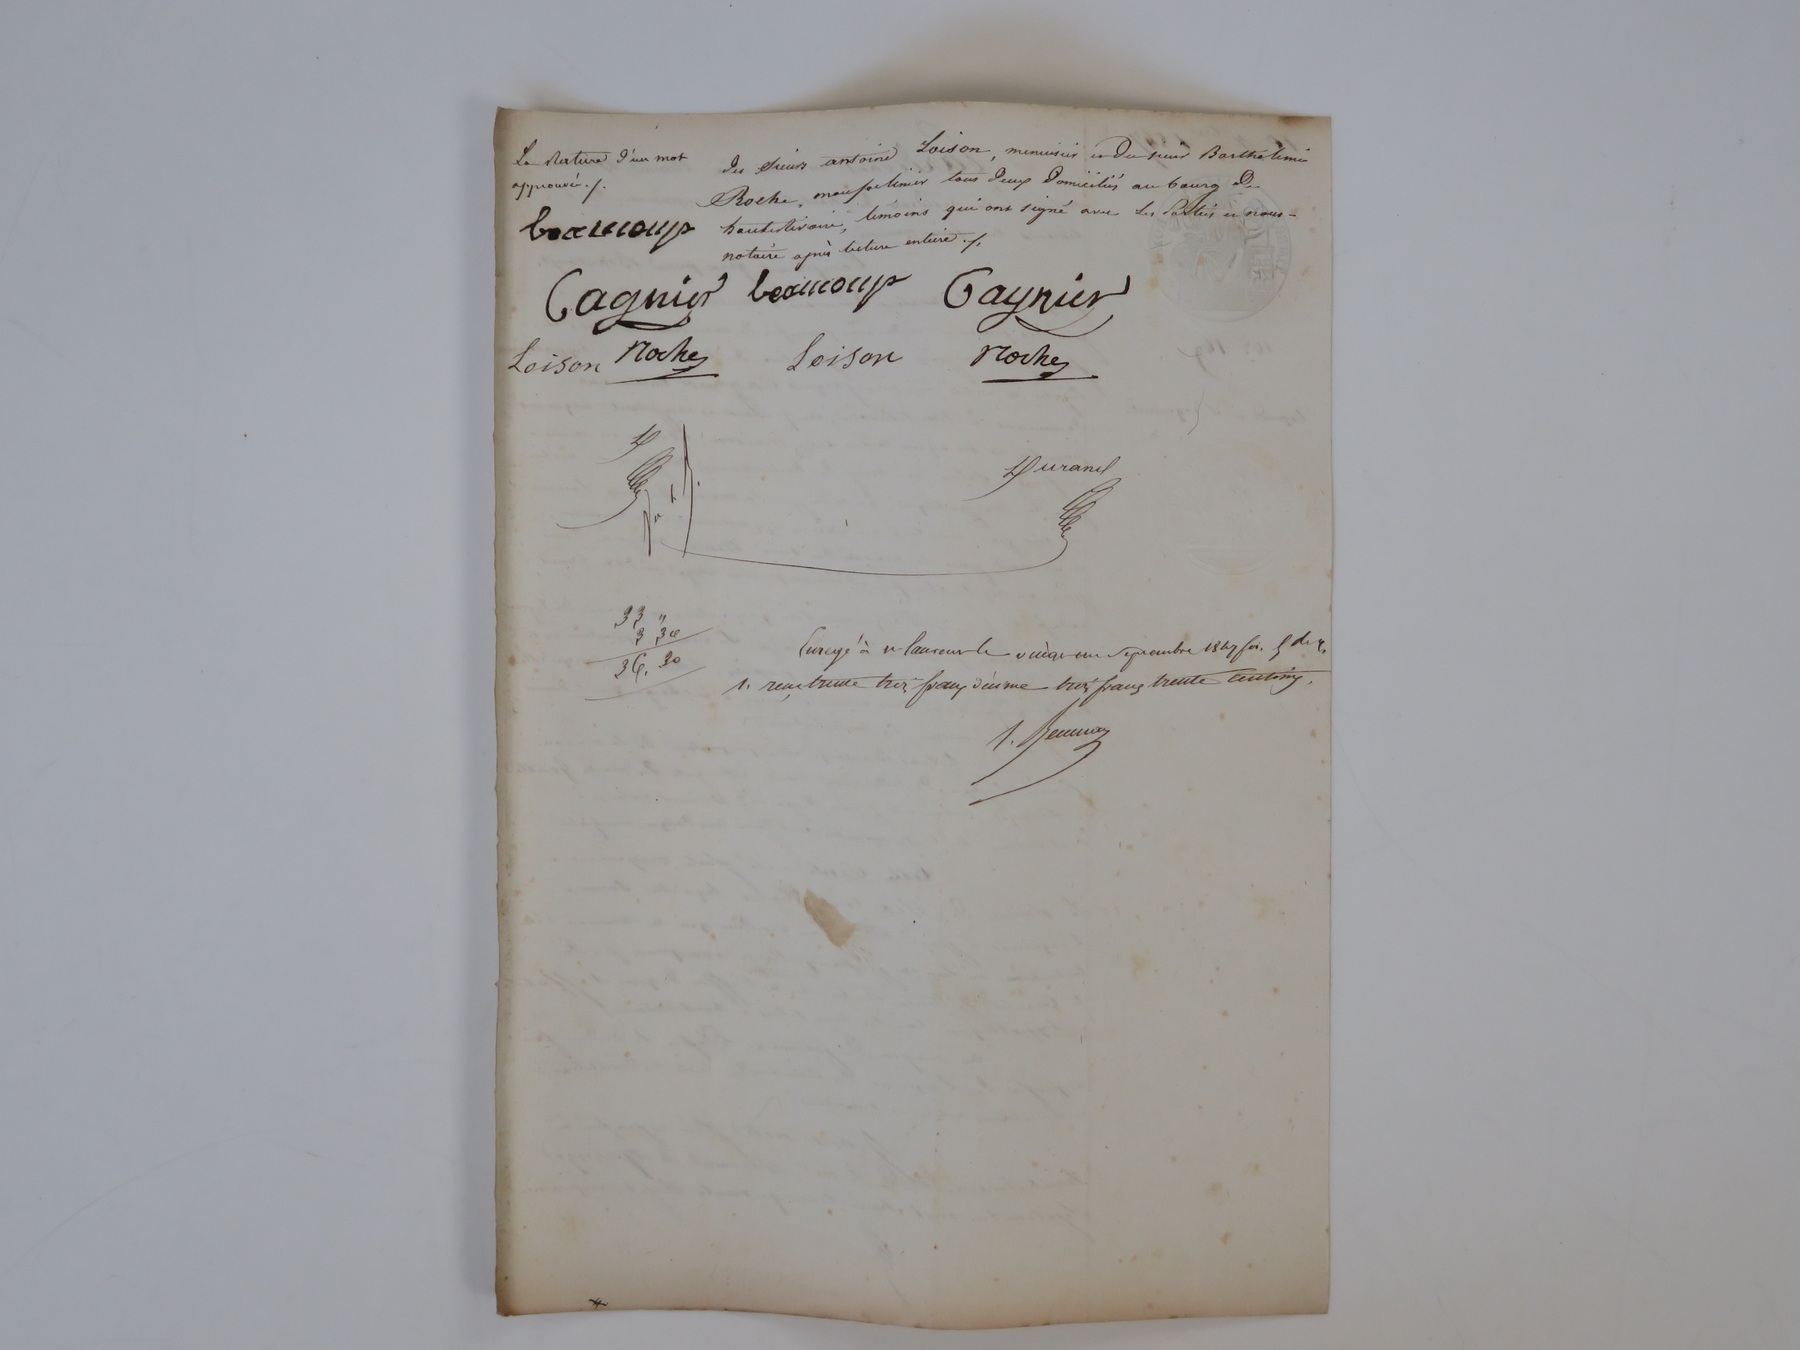 La Rature d'un mot
approuvée ./.
beaucoup
des Sieurs antoine Loison, menuisier et du sieur Barthélemi
Roche, tous deux domiciliés au bourg de
hauterivoire, témoins qui ont signé avec les parties et nous
notaire après lecture entière ./.
Gagnier beaucoup Gagnier
Loison Roche Loison Roche
D Durand
33 "
3 30
36. 30
Enregé à St Laurent le Septembre 1847 fo. 5
reçu trente trois francs décime trois francs trente centimes.